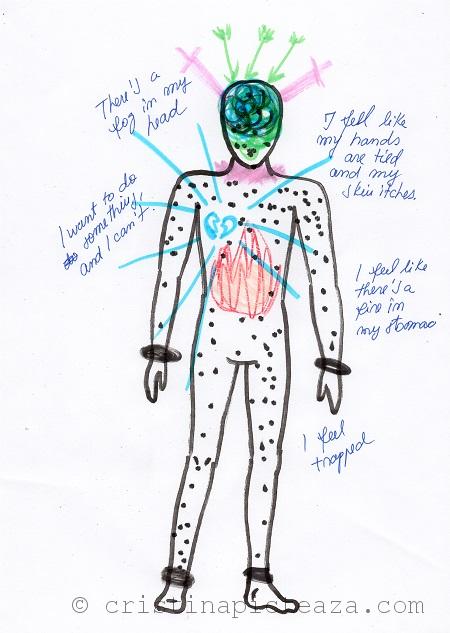 There's a
fog in my
head
I fell like
my hands
are tied
and my
skin itches.
I want to do
something
and I can't.
I feel like
there's a
fire in
my stomac
I feel
trapped
© cristinapisteaza.com